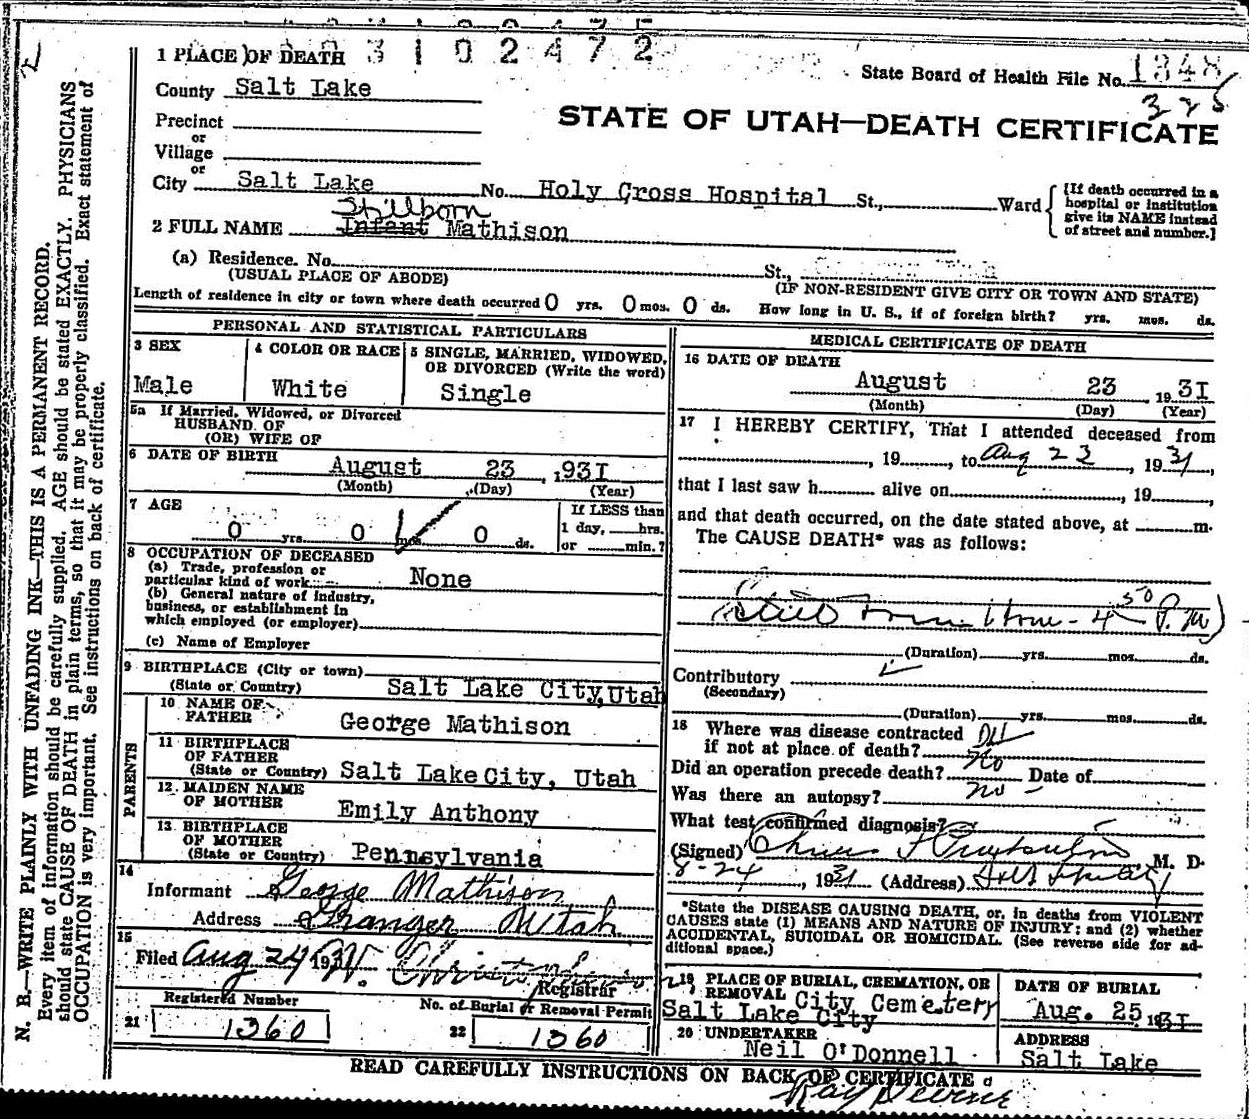 3102472
1 PLACE OF DEATH
State Board of Health File No. 1348
325
County Salt Lake
STATE OF UTAH—DEATH CERTIFICATE
Precinct
or
Village
or
City Salt Lake No. Holy Cross Hospital St., Ward
[If death occurred in a
hospital or institution
give its NAME instead
of street and number.]
Stillborn
2 FULL NAME Infant Mathison
(a) Residence. No. St.,
(USUAL PLACE OF ABODE) (IF NON-RESIDENT GIVE CITY OR TOWN AND STATE)
Length of residence in city or town where death occurred 0 yrs. 0 mos. 0 ds. How long in U. S., if of foreign birth? yrs. mos. ds.
PERSONAL AND STATISTICAL PARTICULARS
3 SEX
Male
4 COLOR OR RACE
White
5 SINGLE, MARRIED, WIDOWED,
OR DIVORCED (Write the word)
Single
5a If Married, Widowed, or Divorced
HUSBAND OF
(OR) WIFE OF
6 DATE OF BIRTH
August 23 ,93I
(Month) (Day) (Year)
7 AGE
0 yrs. 0 mos. 0 ds.
If LESS than
1 day, hrs.
or min.?
8 OCCUPATION OF DECEASED
(a) Trade, profession or
particular kind of work None
(b) General nature of industry,
business, or establishment in
which employed (or employer)
(c) Name of Employer
9 BIRTHPLACE (City or town)
(State or Country) Salt Lake City,Utah
PARENTS
10 NAME OF
FATHER George Mathison
11 BIRTHPLACE
OF FATHER
(State or Country) Salt Lake City, Utah
12 MAIDEN NAME
OF MOTHER Emily Anthony
13 BIRTHPLACE
OF MOTHER
(State or Country) Pennsylvania
14
Informant George Mathison
Address Granger Utah
15
Filed Aug 24 1931
Registrar
Registered Number
21 1360
No. of Burial or Removal Permit
22 1360
MEDICAL CERTIFICATE OF DEATH
16 DATE OF DEATH
August 23 1931
(Month) (Day) (Year)
17 I HEREBY CERTIFY, That I attended deceased from
, 19 , to Aug 23 , 1931,
that I last saw h alive on , 19 ,
and that death occurred, on the date stated above, at m.
The CAUSE DEATH* was as follows:
4 50 P.M)
(Duration) yrs. mos. ds.
Contributory
(Secondary)
(Duration) yrs. mos. ds.
18 Where was disease contracted
if not at place of death?
Did an operation precede death? No Date of
Was there an autopsy? no
What test confirmed diagnosis?
(Signed) M. D.
8-24, 1931 (Address)
*State the DISEASE CAUSING DEATH, or, in deaths from VIOLENT
CAUSES state (1) MEANS AND NATURE OF INJURY: and (2) whether
ACCIDENTAL, SUICIDAL OR HOMICIDAL. (See reverse side for ad-
ditional space.)
19 PLACE OF BURIAL, CREMATION, OR
REMOVAL City Cemetery
Salt Lake City
DATE OF BURIAL
Aug. 25 1931
20 UNDERTAKER
Neil O'Donnell
ADDRESS
Salt Lake
READ CAREFULLY INSTRUCTIONS ON BACK OF CERTIFICATE
Ray
N. B.—WRITE PLAINLY WITH UNFADING INK—THIS IS A PERMANENT RECORD.
Every item of information should be carefully supplied. AGE should be stated EXACTLY. PHYSICIANS
should state CAUSE OF DEATH in plain terms, so that it may be properly classified. Exact statement of
OCCUPATION is very important. See instructions on back of certificate.